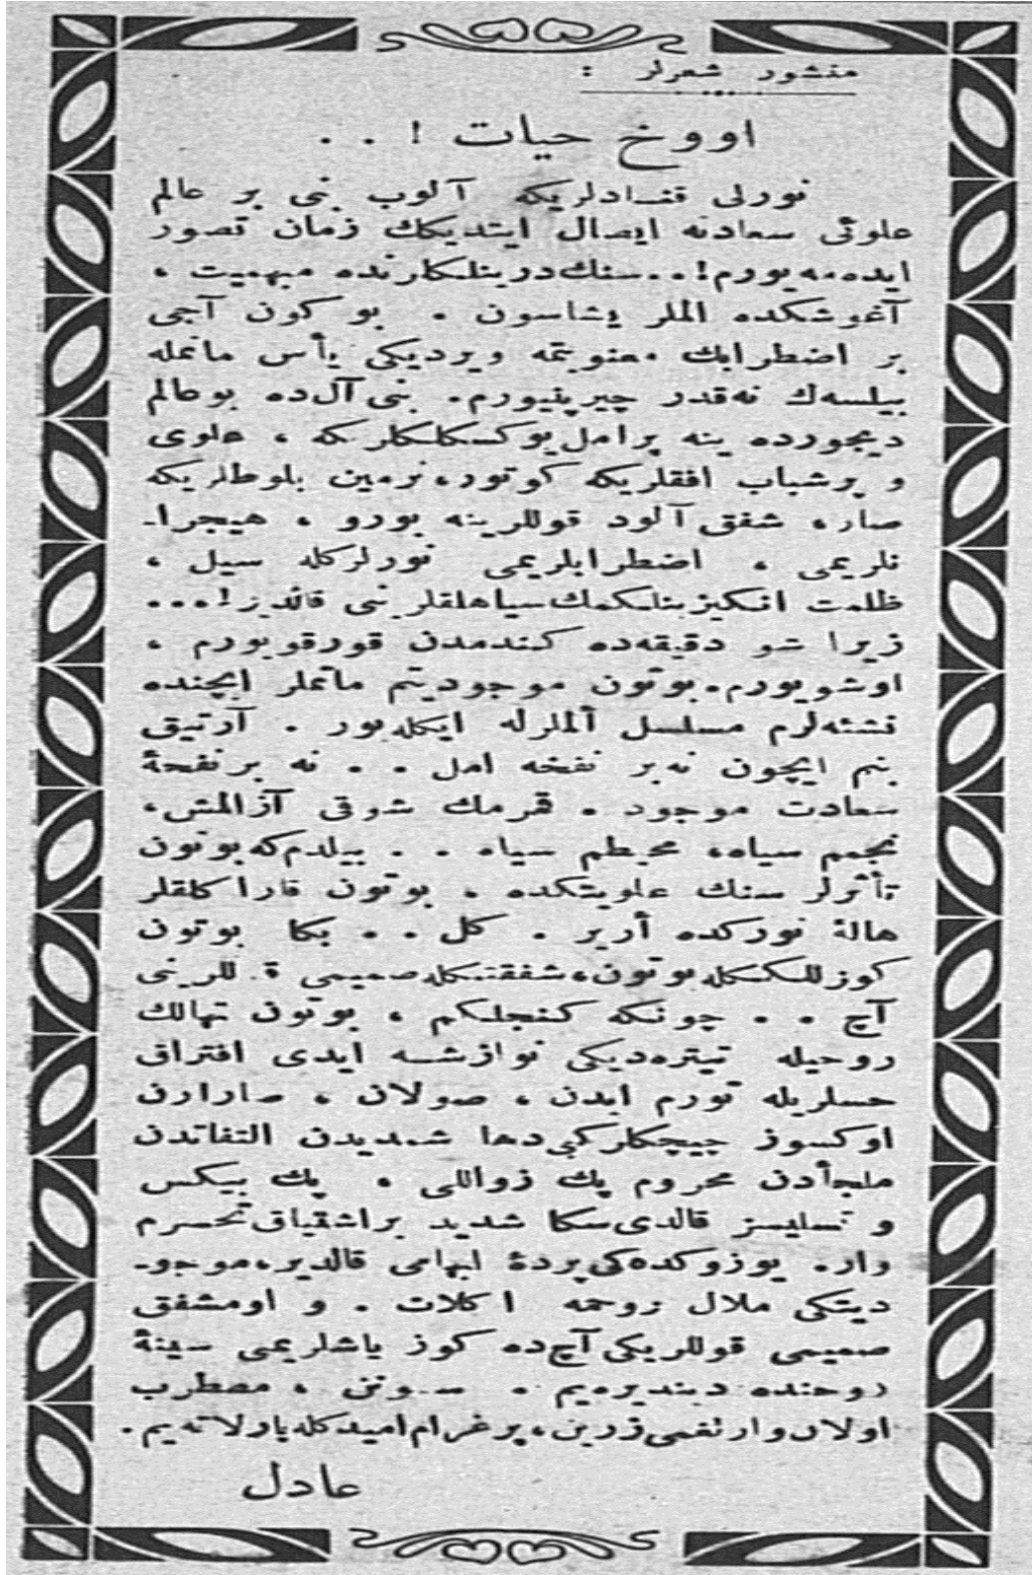 منثور شعرلر :
اووخ حیات ! . .
نورلی قنادلریكه آلوب بنی بر عالم
علوئی سعادته ایصال ایتدیكك زمان تصور
ایده‌مه‌یورم! . . سنك درینلكلرنده مبهمیت ،
آغوشكده الملر یشاسون . بو كون آجی
بر اضطرابك معنویتمه ویردیكی یأس ماتمله
بیلسه‌ك نه‌قدر چیرپنیورم . بنی آل ده بو عالم
دیجورده ینه پر امل یوكسكلكلركه ، علوی
و پر شباب افقلریكه كوتور ، نرمین بلوطلریكه
صار ، شفق آلود قوللرینه بورو ، هیجرا-
نلریمی ، اضطرابلریمی نورلركله سیل ،
ظلمت انكیز بنلكمك سیاهلقلرینی قالدیر! . . .
زیرا شو دقیقه‌ده كندمدن قورقویورم ،
اوشویورم . بوتون موجودیتم ماتملر ایچنده
نشئه‌لرم مسلسل ألملرله ایكله‌یور . آرتیق
بنم ایچون نه‌بر نفخه امل . . نه بر نفحهٔ
سعادت موجود . قمرمك شوقی آزالمش،
نجمم سیاه، محیطم سیاه . . بیلدم‌كه بوتون
تأثرلر سنك علویتكده . بوتون قارا كلقلر
هالهٔ نوركده أریر . كل . . بكا بوتون
كوزللككله بوتون، شفقتكله صمیمی قوللرینی
آچ . . چونكه كنجلكم ، بوتون تهالك
روحیله تیتره‌دیكی نوازشــه ایدی افتراق
حسلریله تورم ایدن ، صولان ، صارارن
اوكسوز چیچكلر كبی دها شمدیدن التفاتدن
ملجأدن محروم پك زواللی ، پك بیكس
و تسلیسز قالدی سكا شدید بر اشتیاق تحسرم
وار. یوزوكده‌كی پردهٔ ابهامی قالدیر، موجو-
دیتكی ملال روحمه اكلات . و اومشفق
صمیمی قوللریكی آچ ده كوز یاشلریمی سینهٔ
روحنده دیندیره‌یم . سونن ، مضطرب
اولان وارلغمی زرین، پر غرام امیدكله پارلاته‌یم.
عادل